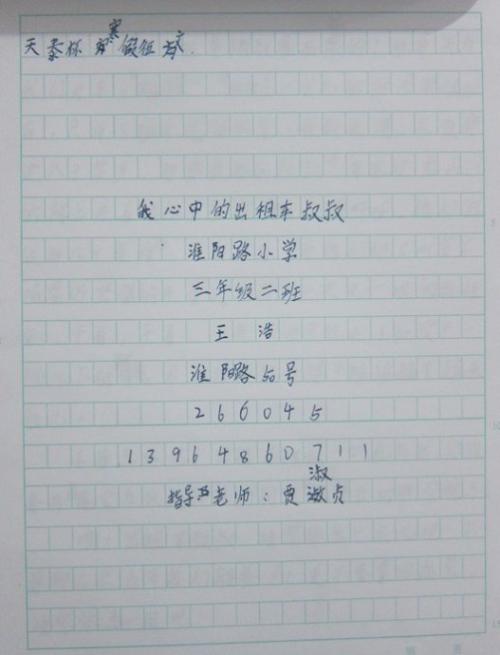 天泰杯寒假征文.
我心中的出租车叔叔
淮阳路小学
三年级二班
王 浩
淮阳路50号
266045
13964860711
指导老师：贾淑贞